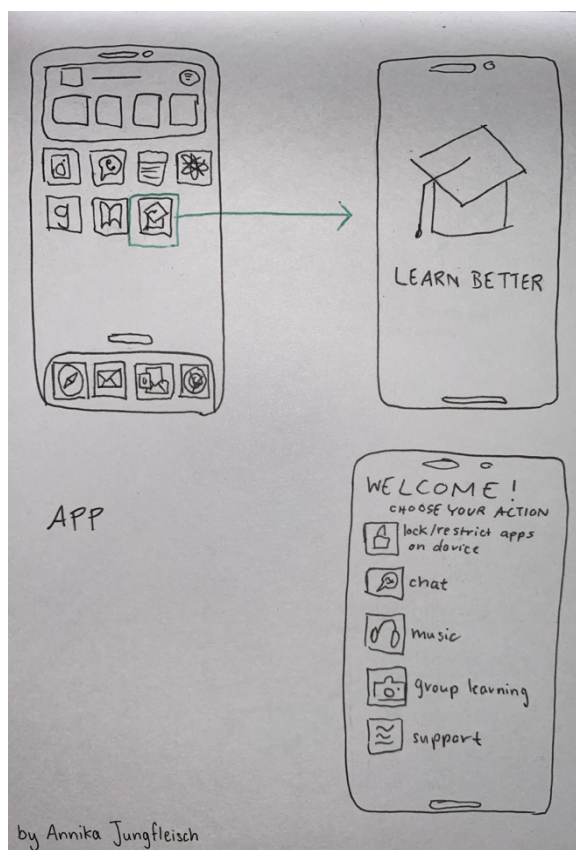 g
LEARN BETTER
APP
WELCOME!
CHOOSE YOUR ACTION
lock/restrict apps
on device
chat
music
group learning
support
by Annika Jungfleisch